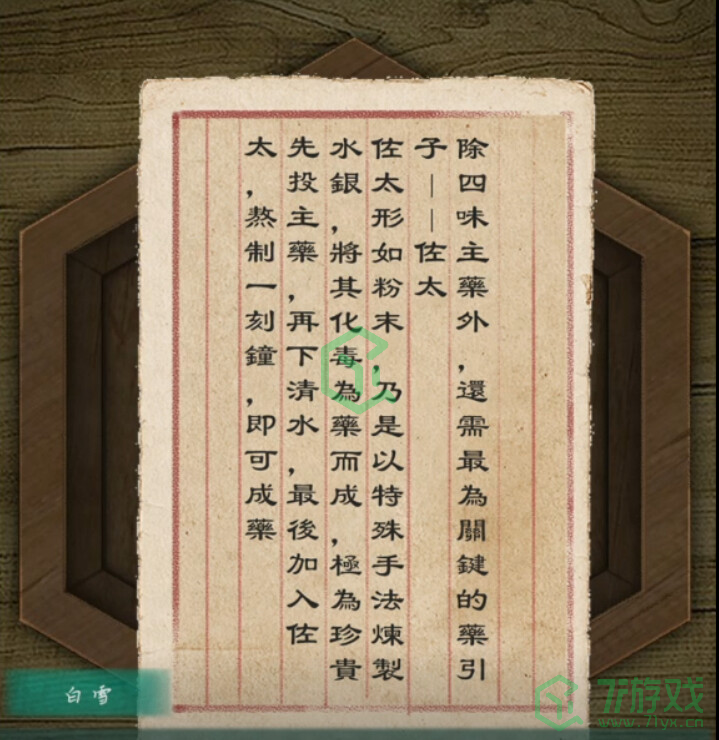 除四味主藥外，還需最為關鍵的藥引
子——佐太
佐太形如粉末，乃是以特殊手法煉製
水銀，將其化毒為藥而成，極為珍貴
先投主藥，再下清水，最後加入佐
太，熬制一刻鐘，即可成藥
白雪
7i游戏
www.7iyx.com